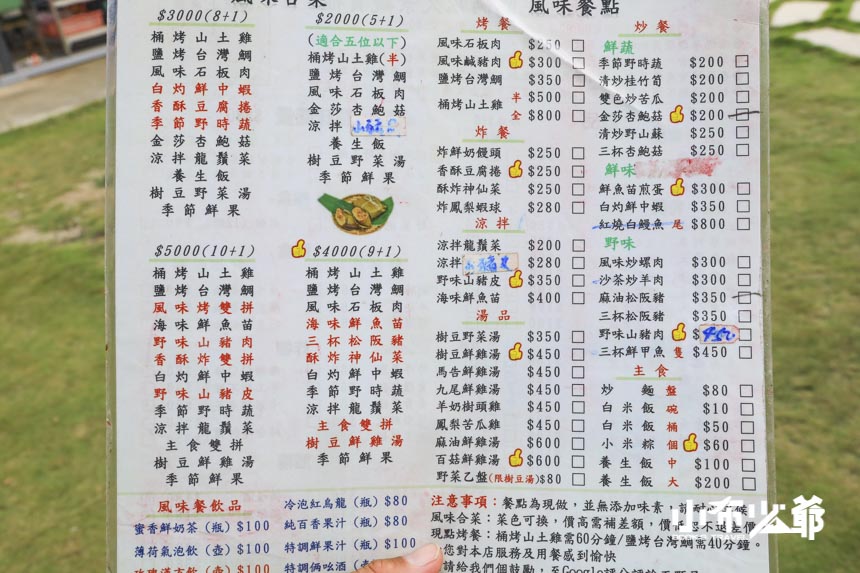 風味合菜
$3000(8+1)
桶烤山土雞
鹽烤台灣鯛
風味石板肉
白灼鮮中蝦
香酥豆腐捲
季節野時蔬
金莎杏鮑菇
涼拌龍鬚菜
養生飯
樹豆野菜湯
季節鮮果
$2000(5+1)
(適合五位以下)
桶烤山土雞(半)
鹽烤台灣鯛
風味石板肉
金莎杏鮑菇
涼拌
養生飯
樹豆野菜湯
季節鮮果
$5000(10+1)
桶烤山土雞
鹽烤台灣鯛
風味烤雙拼
海味鮮魚苗
野味山豬肉
香酥炸雙拼
白灼鮮中蝦
野味山豬皮
季節野時蔬
涼拌龍鬚菜
主食雙拼
樹豆鮮雞湯
季節鮮果
$4000(9+1)
桶烤山土雞
鹽烤台灣鯛
風味石板肉
海味鮮魚苗
三杯松阪豬
酥炸神仙菜
白灼鮮中蝦
季節野時蔬
涼拌龍鬚菜
主食雙拼
樹豆鮮雞湯
季節鮮果
風味餐飲品
蜜香鮮奶茶(瓶)$100
薄荷氣泡飲(壺)$100
玫瑰漢方飲(壺)$100
冷泡紅烏龍(瓶)$80
純百香果汁(瓶)$80
特調鮮果汁(瓶)$100
特調倆吆酒
風味餐點
烤餐
風味石板肉 $250 □
風味鹹豬肉 $300 □
鹽烤台灣鯛 $350 □
桶烤山土雞 半 $500 □
全 $800 □
炸餐
炸鮮奶饅頭 $250 □
香酥豆腐捲 $250 □
酥炸神仙菜 $250 □
炸鳳梨蝦球 $280 □
涼拌
涼拌龍鬚菜 $200 □
涼拌 $280 □
野味山豬皮 $350 □
海味鮮魚苗 $400 □
湯品
樹豆野菜湯 $350 □
樹豆鮮雞湯 $450 □
馬告鮮雞湯 $450 □
九尾鮮雞湯 $450 □
羊奶樹頭雞 $450 □
鳳梨苦瓜雞 $450 □
麻油鮮雞湯 $600 □
百菇鮮雞湯 $600 □
野菜乙盤(限樹豆湯)$80 □
炒餐
鮮蔬
季節野時蔬 $200 □
清炒桂竹筍 $200 □
雙色炒苦瓜 $200 □
金莎杏鮑菇 $200 □
清炒野山蘇 $250 □
三杯杏鮑菇 $250 □
鮮味
鮮魚苗煎蛋 $300 □
白灼鮮中蝦 $350 □
紅燒白鰻魚 尾 $800 □
野味
風味炒螺肉 $300 □
沙茶炒羊肉 $300 □
麻油松阪豬 $350 □
三杯松阪豬 $350 □
野味山豬肉 $450 □
三杯鮮甲魚 隻 $450 □
主食
炒麵 盤 $80 □
白米飯 碗 $10 □
白米飯 桶 $50 □
小米粽 個 $60 □
養生飯 中 $100 □
養生飯 大 $200 □
注意事項：餐點為現做，並無添加味素，請耐心等候
風味合菜：菜色可換，價高需補差額，價低恕不退差價
現點烤餐：桶烤山土雞需60分鐘/鹽烤台灣鯛需40分鐘。
您對本店服務及用餐感到愉快
請給我們個鼓勵，至Google評分
小布少爺